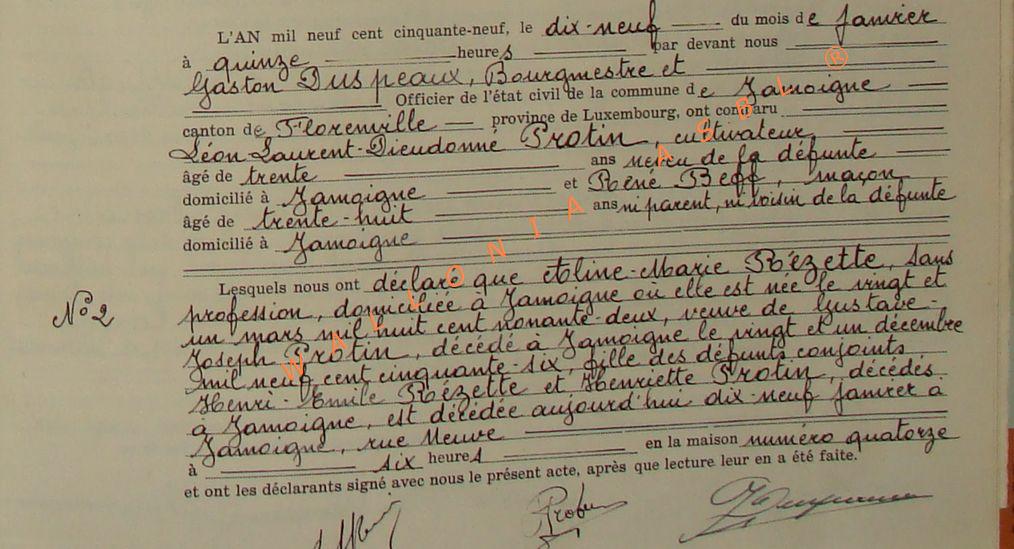 L'AN mil neuf cent cinquante-neuf, le dix-neuf du mois de Janvier
à quinze heures par devant nous
Gaston Duspeaux, Bourgmestre et
Officier de l'état civil de la commune de Jamoigne
canton de Florenville province de Luxembourg, ont comparu
Léon-Laurent-Dieudonné Protin, cultivateur,
âgé de trente ans neveu de la défunte
domicilié à Jamoigne et René Beff, maçon
âgé de trente-huit ans ni parent, ni voisin de la défunte
domicilié à Jamoigne
Lesquels nous ont déclaré que Aline-Marie Rézette, sans
N° 2
profession, domiciliée à Jamoigne où elle est née le vingt et
un mars mil huit cent nonante-deux, veuve de Gustave-
Joseph Protin, décédé à Jamoigne le vingt et un décembre
mil neuf cent cinquante-six, fille des défunts conjoints
Henri-Emile Rézette et Henriette Protin, décédés
à Jamoigne, est décédée aujourd'hui dix-neuf janvier à
Jamoigne, rue Neuve
à six heures en la maison numéro quatorze
et ont les déclarants signé avec nous le présent acte, après que lecture leur en a été faite.
WALLONIA ASBL ®